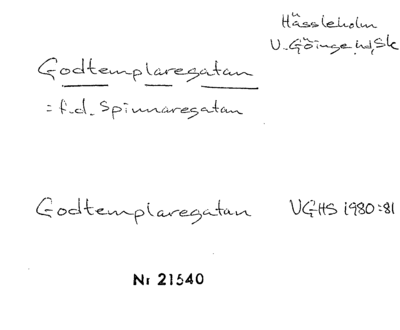 Hässleholm
V. Göinge hd, Sk
Godtemplaregatan
= f.d. Spinnaregatan
Godtemplaregatan VGHS 1980:81
Nr 21540